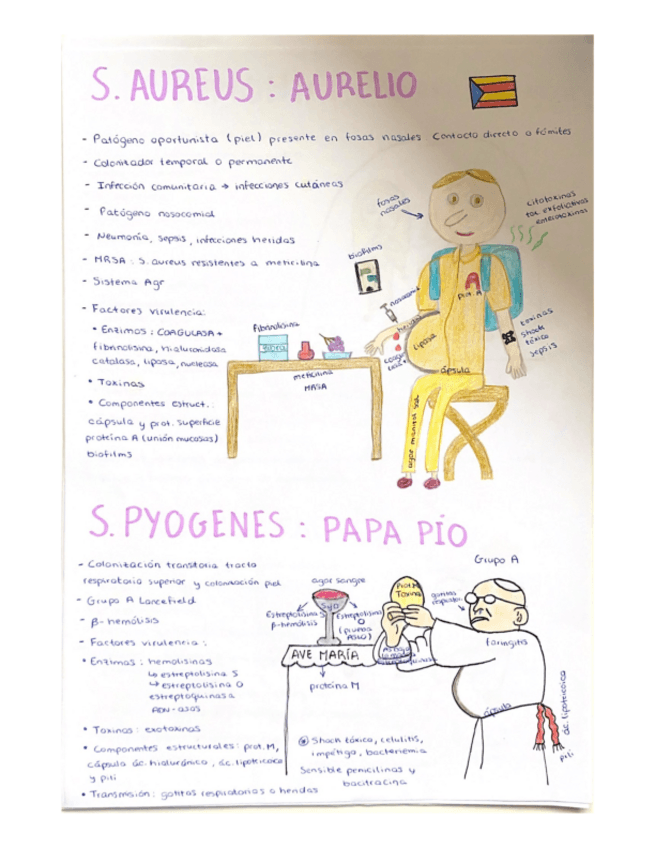 S. AUREUS : AURELIO
- Patógeno oportunista (piel) presente en fosas nasales Contacto directo o fómites
- Colonizador temporal o permanente
- Infección comunitaria → infecciones cutáneas
- Patógeno nosocomial
- Neumonía, sepsis, infecciones heridas
- MRSA : S. aureus resistentes a meticilina
- Sistema Agr
- Factores virulencia:
• Enzimas : COAGULASA +
fibrinolisina, hialuronidasa
catalasa, lipasa, nucleasa
• Toxinas
• Componentes estruct. :
cápsula y prot. superficie
proteína A (unión mucosas)
biofilms
fosas
nasales
citotoxinas
tox. exfoliativas
enterotoxinas
biofilms
nosocomial
Prot. A
heridas
lipasa
toxinas
shock
tóxico
sepsis
cápsula
fibrinolisina
fibra
meticilina
MRSA
agar manitol sal
S. PYOGENES : PAPA PÍO
- Colonización transitoria tracto
respiratorio superior y colonización piel
- Grupo A Lancefield
- β-hemólisis
- Factores virulencia :
• Enzimas : hemolisinas
↳ estreptolisina S
↳ estreptolisina O
estreptoquinasa
ADN-asas
• Toxinas : exotoxinas
• Componentes estructurales : prot. M,
cápsula ác. hialurónico, ác. lipoteicoico
y pili
• Transmisión : gotitas respiratorias o heridas
Grupo A
agar sangre
Estreptolisina S
β-hemólisis
Estreptolisina
O
(prueba
ASLO)
Prot. M
Toxina
gotitas
respiratorias
faringitis
AVE MARÍA
proteína M
cápsula
ác. lipoteicoico
pili
Shock tóxico, celulitis,
impétigo, bacteriemia
Sensible penicilinas y
bacitracina